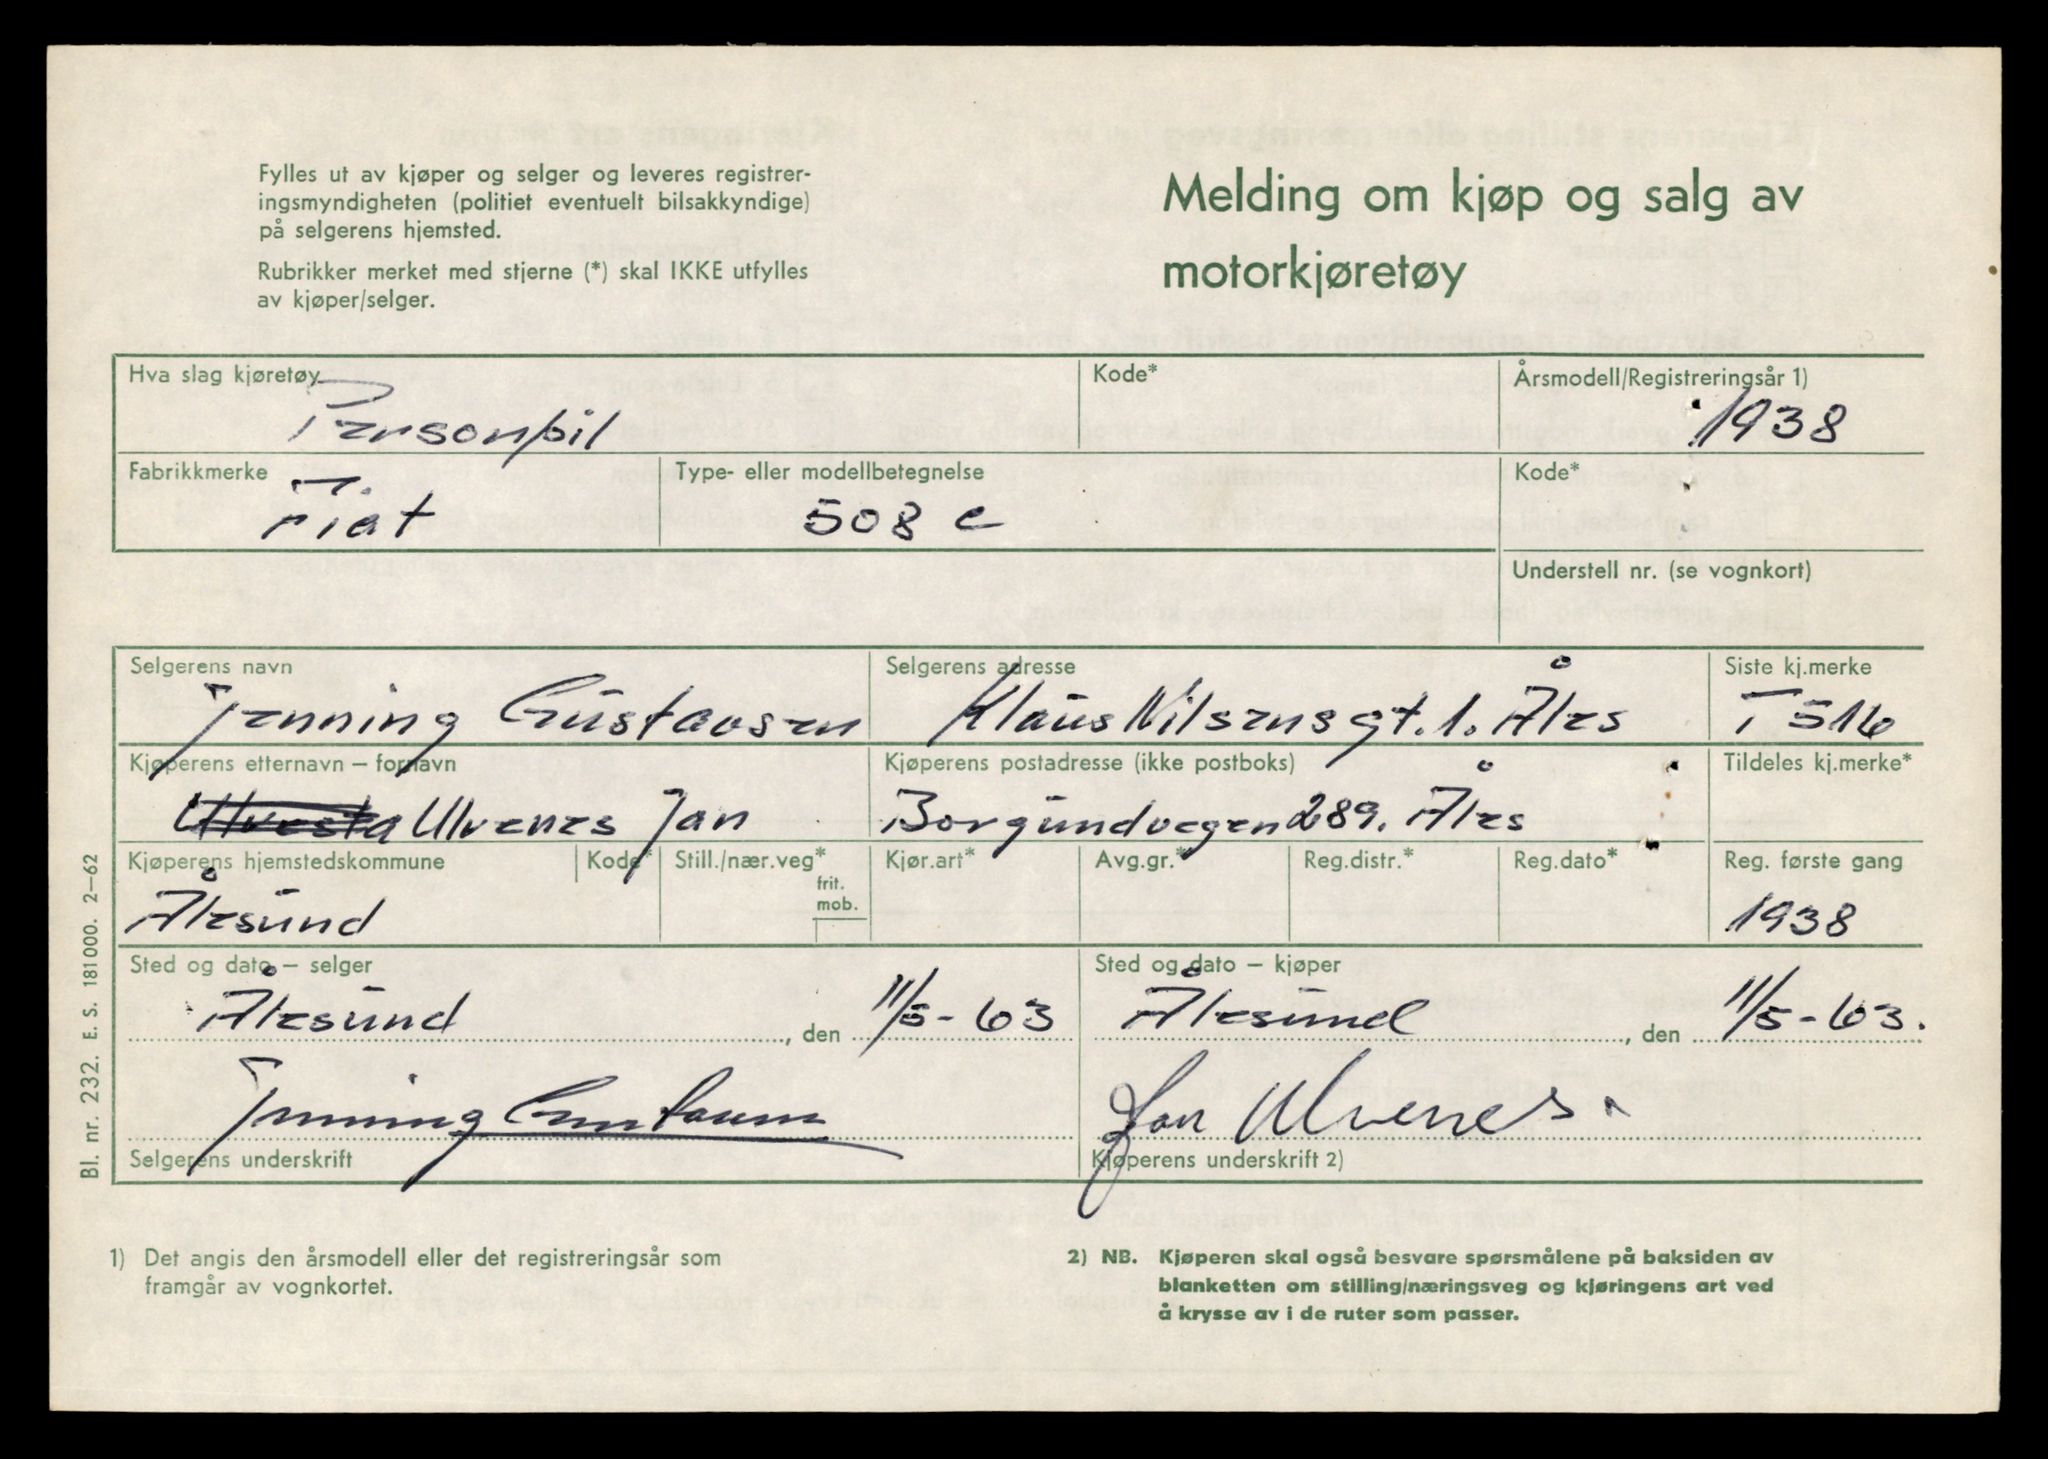 Fylles ut av kjøper og selger og leveres registrer-
ingsmyndigheten (politiet eventuelt bilsakkyndige)
på selgerens hjemsted.
Rubrikker merket med stjerne (*) skal IKKE utfylles
av kjøper/selger.
Melding om kjøp og salg av
motorkjøretøy
Hva slag kjøretøy
Personbil
Kode*
Årsmodell/Registreringsår 1)
1938
Fabrikkmerke
Fiat
Type- eller modellbetegnelse
508 c
Kode*
Understell nr. (se vognkort)
Selgerens navn
Jenning Gustavsen
Selgerens adresse
Klaus Nilsensgt. 1. Åles
Siste kj.merke
T 516
Kjøperens etternavn – fornavn
Ulvenes Jan
Kjøperens postadresse (ikke postboks)
Borgundvegen 289. Åles
Tildeles kj.merke*
Kjøperens hjemstedskommune
Ålesund
Kode*
Still./nær.veg*
frit.
mob.
Kjør.art*
Avg.gr.*
Reg.distr.*
Reg.dato*
Reg. første gang
1938
Sted og dato – selger
Ålesund, den 11/5-63
Sted og dato – kjøper
Ålesund, den 11/5-63.
Jenning Gustavsen
Selgerens underskrift
Jan Ulvenes
Kjøperens underskrift 2)
1) Det angis den årsmodell eller det registreringsår som
framgår av vognkortet.
2) NB. Kjøperen skal også besvare spørsmålene på baksiden av
blanketten om stilling/næringsveg og kjøringens art ved
å krysse av i de ruter som passer.
Bl. nr. 232. E. S. 181000. 2–62